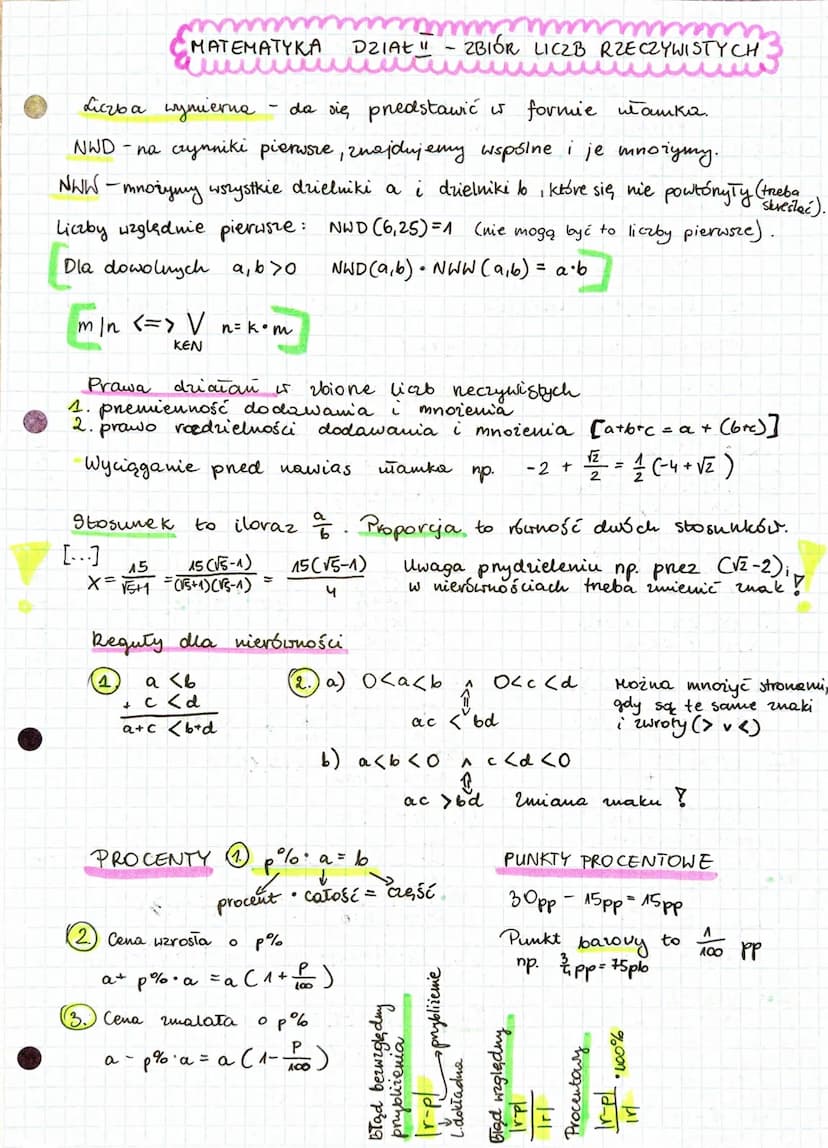 MATEMATYKA DZIAŁ II – ZBIÓR LICZB RZECZYWISTYCH
Liczba wymierna – da się przedstawić w formie ułamka.
NWD – na czynniki pierwsze, znajdujemy wspólne i je mnożymy.
NWW – mnożymy wszystkie dzielniki a i dzielniki b, które się nie powtórzyły (trzeba skreślać).
Liczby względnie pierwsze: NWD(6,25)=1 (nie mogą być to liczby pierwsze).
[Dla dowolnych a,b>0 NWD(a,b)·NWW(a,b)=a·b]
[m|n <=> V n=k·m]
KEN
Prawa działań w zbiorze liczb rzeczywistych
1. przemienność dodawania i mnożenia
2. prawo rozdzielności dodawania i mnożenia [a+b+c = a + (b+c)]
-Wyciąganie przed nawias ułamka np. -2 + √2/2 = 1/2 (-4+√2)
Stosunek to iloraz a/b. Proporcja to równość dwóch stosunków.
[...]
x = 15/√5+1 = 15(√5-1)/(√5+1)(√5-1) = 15(√5-1)/4
Uwaga przy dzieleniu np. przez (√2-2),
w nierównościach trzeba zmienić znak!
Reguły dla nierówności
1. a<b
+ c<d
a+c <b+d
2. a) 0<a<b ∧ 0<c<d
⇕
ac < bd
Można mnożyć stronami,
gdy są te same znaki
i zwroty (> v <)
b) a<b<0 ∧ c<d<0
⇕
ac >bd Zmiana znaku!
PROCENTY 1. p%·a=b
procent · całość = część.
2. Cena wzrosła o p%
a+ p%·a = a(1+p/100)
3. Cena zmalała o p%
a - p%·a = a(1-p/100)
PUNKTY PROCENTOWE
30pp – 15pp = 15pp
Punkt bazowy to 1/100 pp
np. 3/4pp = 75pb
błąd bezwzględny
przybliżenia
|r-p| → przybliżenie
↓ dokładna
Błąd względny
|r-p|/|r|
Procentowy
|r-p|/|r| · 100%